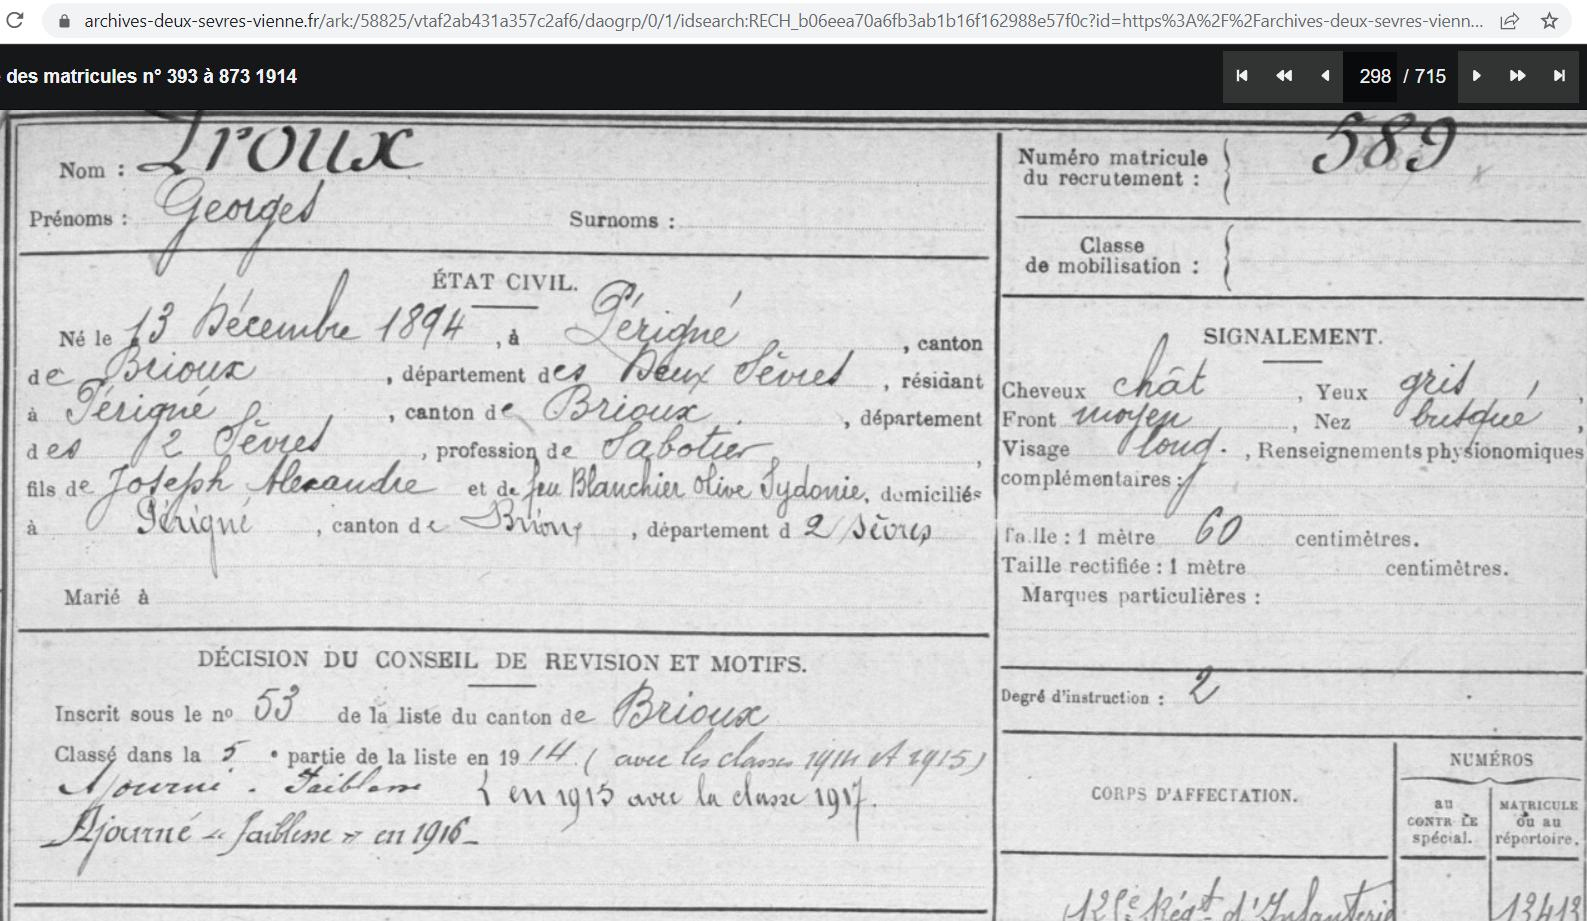 archives-deux-sevres-vienne.fr/ark:/58825/vtaf2ab431a357c2af6/daogrp/0/1/idsearch:RECH_b06eea70a6fb3ab1b16f162988e57f0c?id=https%3A%2F%2Farchives-deux-sevres-vienn...
des matricules n° 393 à 873 1914
298 / 715
Nom : Proux
Prénoms : Georges Surnoms :
ÉTAT CIVIL.
Né le 13 Décembre 1894, à Périgné, canton
de Brioux, département des Deux Sèvres, résidant
à Périgné, canton de Brioux, département
des 2 Sèvres, profession de Sabotier,
fils de Joseph Alexandre et de feu Blanchier Olive Sydonie, domiciliés
à Périgné, canton de Brioux, département d 2 Sèvres
Marié à
DÉCISION DU CONSEIL DE REVISION ET MOTIFS.
Inscrit sous le n° 53 de la liste du canton de Brioux
Classé dans la 5e partie de la liste en 1914. (avec les classes 1914 et 1915)
Ajourné. Faiblesse } en 1915 avec la classe 1917.
Ajourné « faiblesse » en 1916_
Numéro matricule
du recrutement : 589
Classe
de mobilisation :
SIGNALEMENT.
Cheveux chât, Yeux gris,
Front moyen, Nez busqué,
Visage long., Renseignements physionomiques
complémentaires :
Taille : 1 mètre 60 centimètres.
Taille rectifiée : 1 mètre centimètres.
Marques particulières :
Degré d'instruction : 2
CORPS D'AFFECTATION.
NUMÉROS
au
CONTRÔLE
spécial.
MATRICULE
ou au
répertoire.
125e Régt d'Infanterie 13413